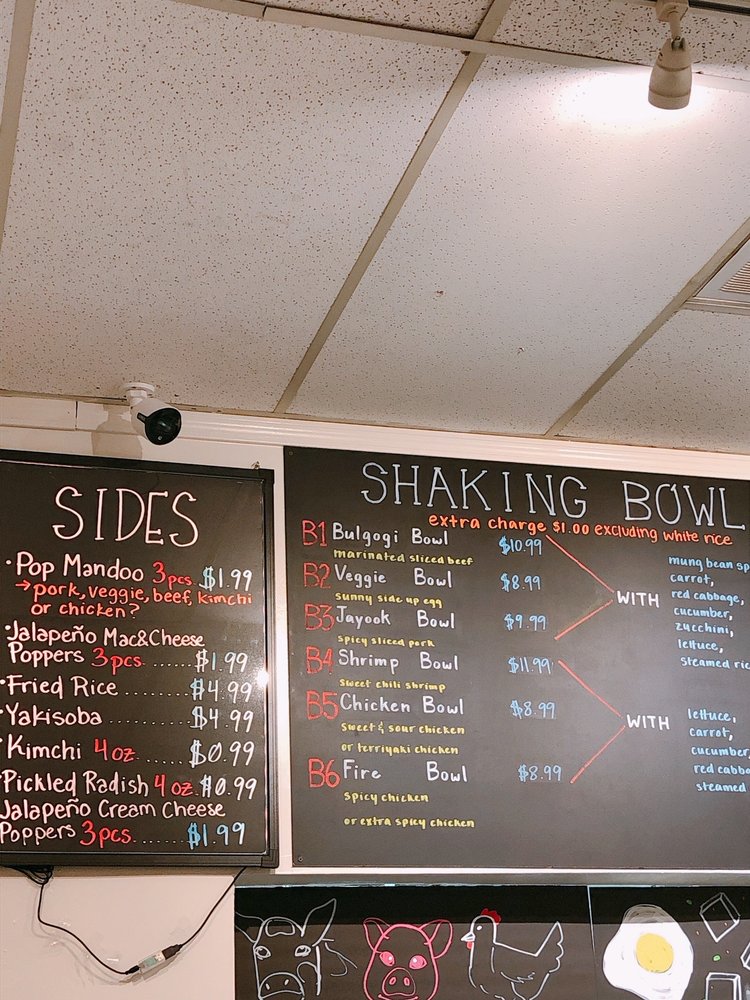 SIDES
·Pop Mandoo 3pcs. $1.99
→pork, veggie, beef, kimchi
or chicken?
·Jalapeño Mac&Cheese
Poppers 3pcs. ......$1.99
·Fried Rice ..........$4.99
·Yakisoba ............$4.99
·Kimchi 4oz ..........$0.99
·Pickled Radish 4oz. $0.99
Jalapeño Cream Cheese
Poppers 3pcs. ......$1.99
SHAKING BOWL
extra charge $1.00 excluding white rice
B1 Bulgogi Bowl $10.99
marinated sliced beef
B2 Veggie Bowl $8.99
sunny side up egg
B3 Jayook Bowl $9.99
spicy sliced pork
WITH
mung bean sp
carrot,
red cabbage,
cucumber,
zucchini,
lettuce,
steamed ric
B4 Shrimp Bowl $11.99
sweet chili shrimp
B5 Chicken Bowl $8.99
sweet & sour chicken
or terriyaki chicken
B6 Fire Bowl $8.99
spicy chicken
or extra spicy chicken
WITH
lettuce,
carrot,
cucumber,
red cabba
steamed